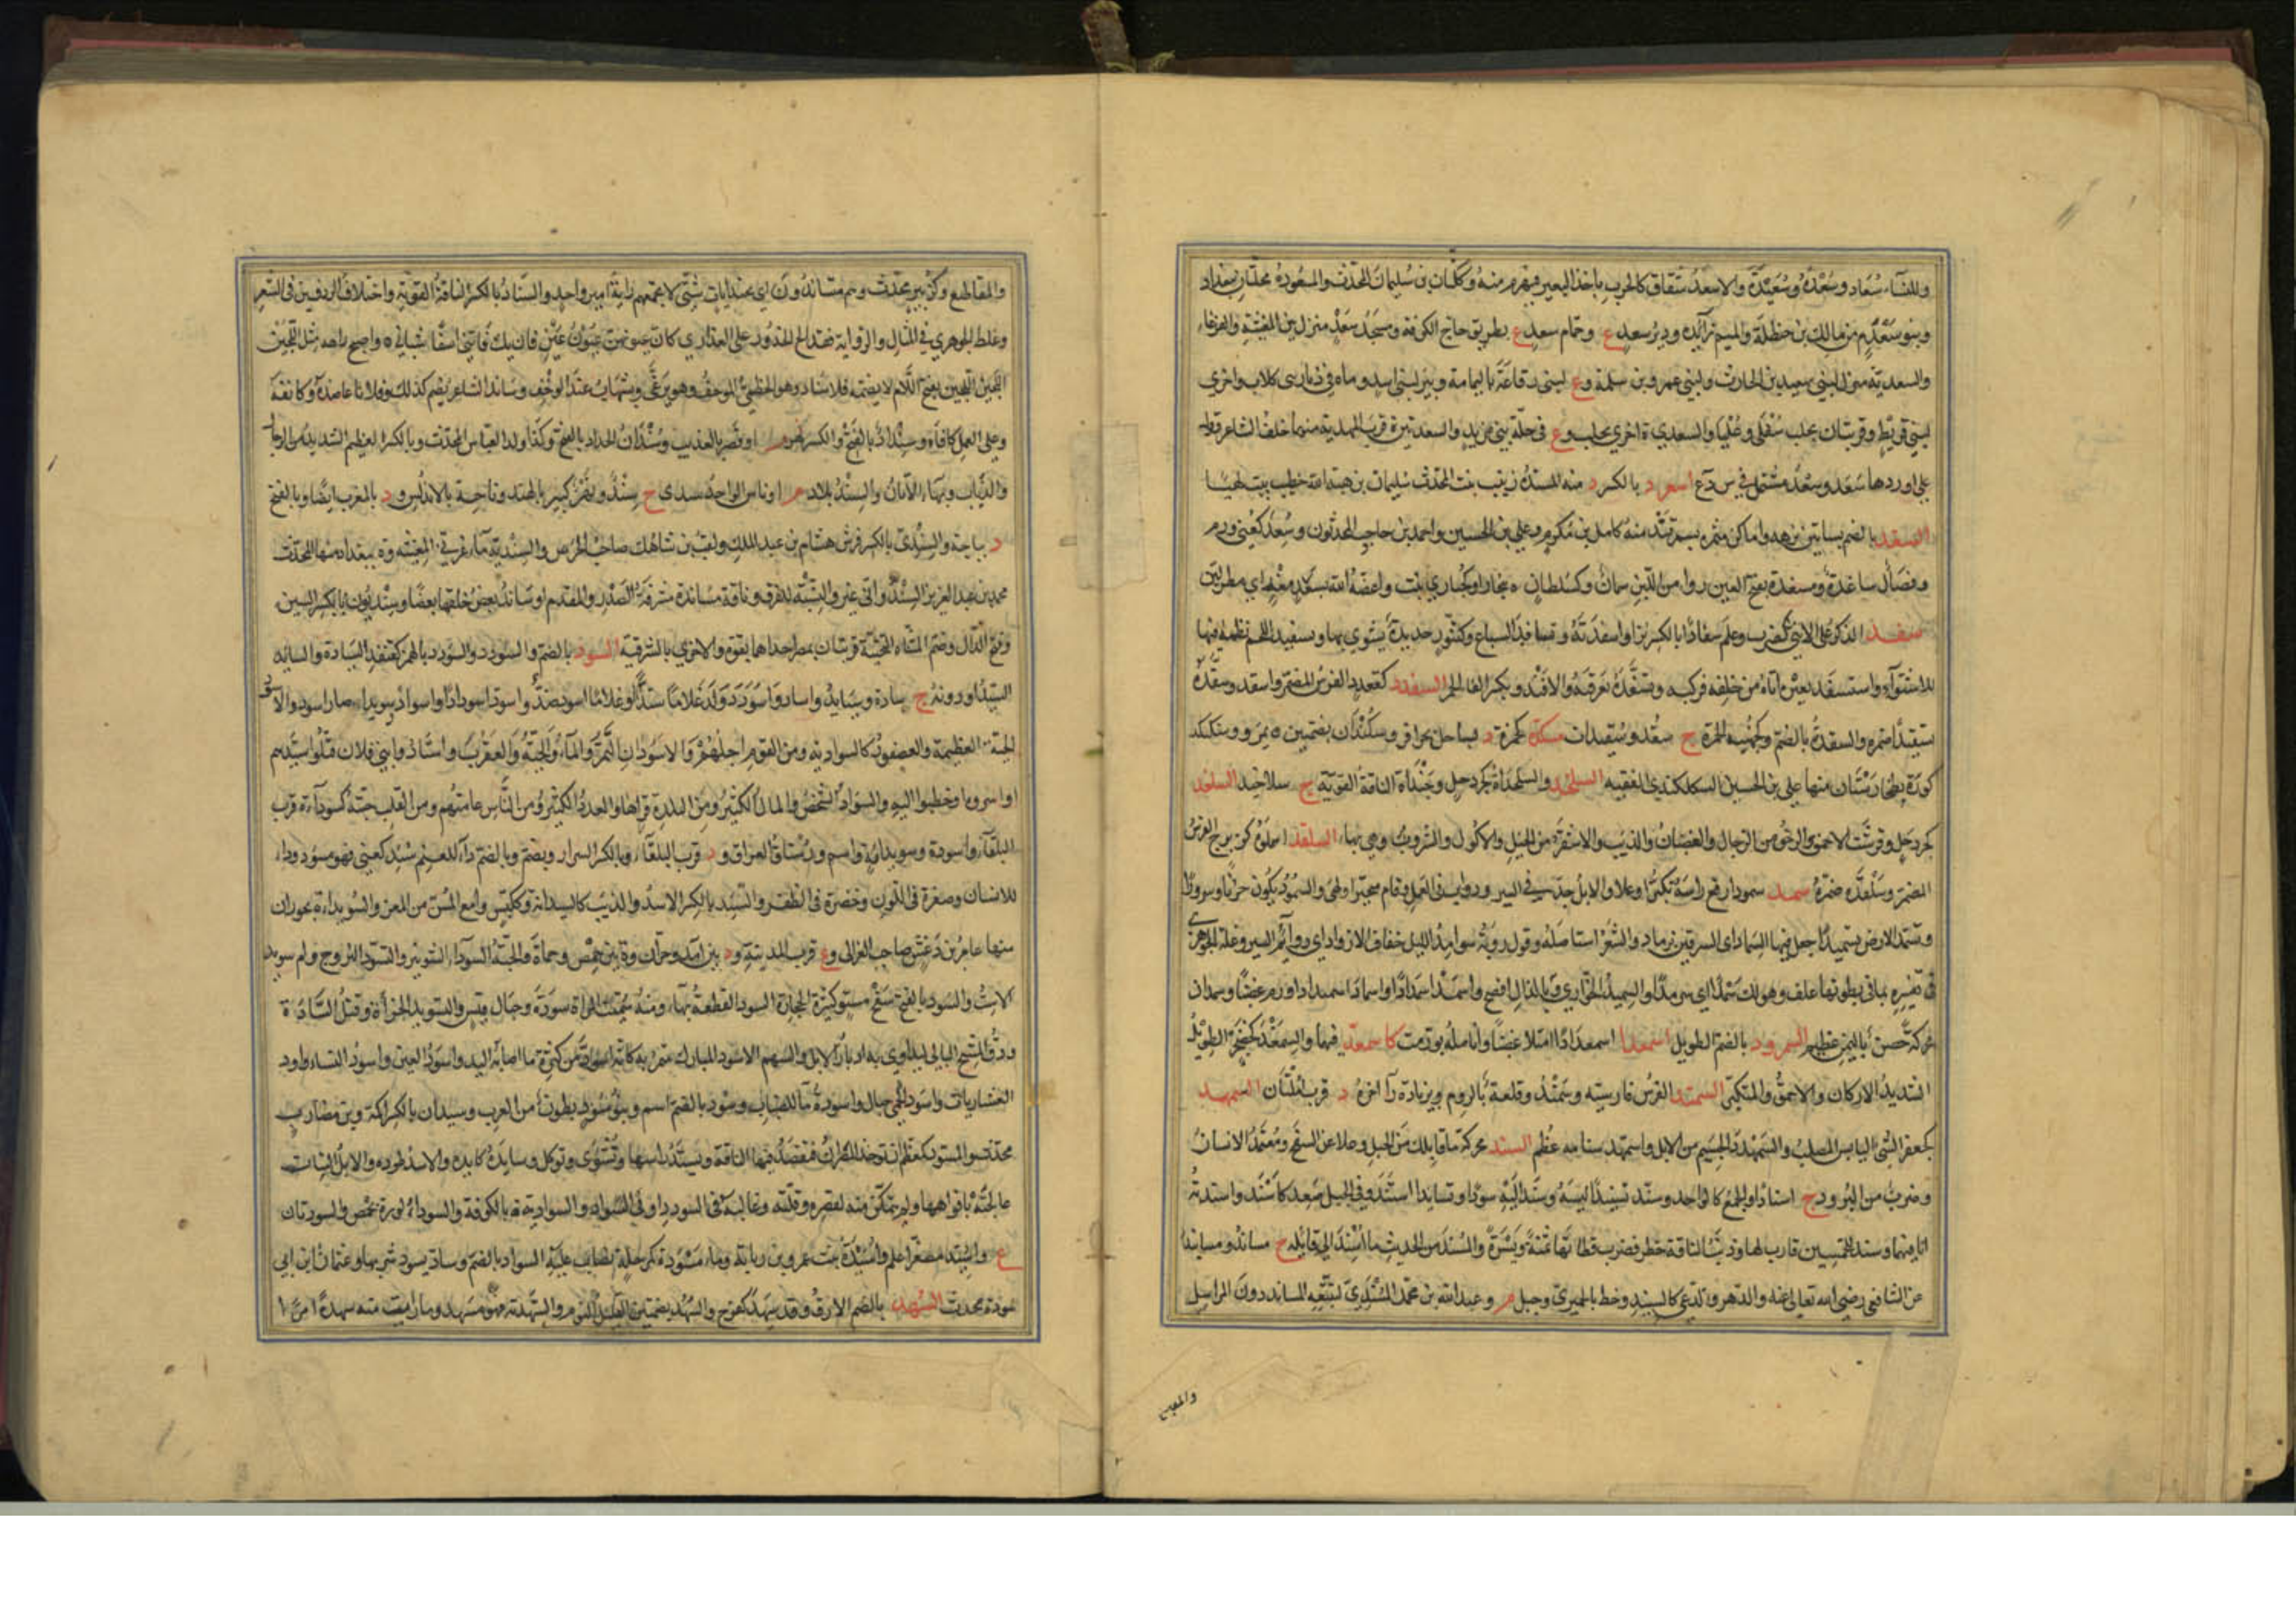 وللنساء سُعاد وسُعْدَةُ وسُعَيْدَةُ والاسعدُ شُقاق كالجرب ياخذ البعير فيهرم منه وككتّان بن سُليمان المحدّث والمسعودة محلّتان ببغداد
وبنو سَعْدَم من مالك بن حنظلة والميم زائدة ودير سعد ع وحمام سعد ع بطريق حاج الكوفة ومسجد سَعْد منزل بين المغيثة والقرعاء
والسعدية منزل لبنى سعد بن الحارث ولبنى عمرو بن سلمة وع لبنى رفاعة باليمامة وبئر لبنى اسد وماء في ديار بنى كلاب واخرى
لبنى قريظ وقريتان بحلب سُفلى وعُليا والسعدى ة اخرى بحلب وع فى حلّة بنى مزيد والسعدتين ة قرب المهدية منها خلف الشاعر وقول
على اوردها سَعد وسَعد مشتمل في س ر ع اسعرد بالكسر د منه المسندة زينب بنت المحدث سليمان بن هبة الله خطيب بيت لهيا
السغد بالضم بساتين نزهة واماكن مثمرة بسمرقند منه كامل بن مُكرم وعلي بن الحسين واحمد بن حاجب المحدثون وسُغِدَ كعُنى ورم
وفصال ساغدة ومسغدة بفتح الغين رواء من اللبن سمان وكسلطان ة ببخارا وكحُبارى نبت
سفد الذكر على الانثى كضرب وعلم سفادا بالكسر نزا واسفدته وتسافد السباع وكتنّور حديدة يشوى بها وتسفيد اللحم نظمه فيها
للاشتواء واستسفد بعيره اتاه من خلفه فركبه وتسفّده تعرقبه السقدد كقعدد الفرس المضمر واسقد وسقّده
تسقيدا ضمره والسقدة بالضم وكجهينة الحمرة ج سقد وسقيدات سكدة كحمزة د بساحل بحر افريقية وسكندان بضمتين ة بمرو وسكلكند
كورة بطخارستان منها علي بن الحسين السكلكندى الفقيه السلخد والسلخداة كجردحل الناقة القوية ج سلاخد السلغد
كجردحل وقرشب الاحمق والرخو من الرجال والغضبان والذيب والاشقر من الخيل والاكول والشروب وهي بهاء السلقد كزبرج الفرس
المضمر وسَلْقَدَه ضمّره سمد سمودا رفع راسه تكبّرا وعلا والابل جدّت في السير ودأب في العمل وقام متحيرا ولهى والسمود يكون حزنا وسرورا
وسمّد الارض تسميدا جعل فيها السماد اى السرقين برماد والشعر استاصله وقول رؤبة سوامد الليل خفاف الازواد اى دوائم السير وغلط الجوهرى
في تفسيره بما في بطونها علف وهو لك سَمْدًا اى سرمدا والسميد الحوارى وبالذال افصح واسمدّ اسمدادا واسمادّ اسميدادا ورم غضبا وسمدان
محركة حصن باليمن عظيم السمرود بالضم الطويل اسمعد اسمعدادا امتلا غضبا وانامله تورّمت كاسمغد فيهما والسمغد كحضجر الطويل
الشديد الاركان والاحمق والمتكبر السمند الفرس فارسية وسمند وقلعة بالروم وبزيادة راء اخره د قرب ملتان السمهد
كجعفر الشئ اليابس الصلب والسَمَهْدَد الجسيم من الابل واسمهد سنامه عظم السند محركة ما قابلك من الجبل وعلا عن السفح ومعتمد الانسان
وضرب من البرود ج اسناد او الجمع كالواحد وسنّد تسنيدا لبسه وسند اليه سنودا وتساند استند وفي الجبل صعد كاسند واسندته
انا فيهما وسند للخمسين قارب لها وذنب الناقة خطر فضرب قطاتها يمنة ويسرة والمُسند من الحديث ما اسند الى قائله ج مساند ومسانيد
عن الشافعى رضى الله تعالى عنه والدهر والدعى كالسنيد وخط بالحميرى وجبل م وعبد الله بن محمد المسندى لتتبعه المساند دون المراسيل
والمقاطيع
والمقاطيع وكزبير محدث وهم متساندون اى تحت رايات شتى لا تجمعهم راية امير واحد والسناد بالكسر الناقة القوية واختلاف الردفين فى الشعر
وغلط الجوهرى في المثال والرواية فقد الج الخدور على العذارى كان عيونهن عيون عين فان يك فاتنى اسفا شبابى واصبح راسه مثل اللجين
اللجين بفتح اللام لا بضمه فلا سناد وهو الخطمى الموخف وهو يرغى ويشهابّ عند الوخف وساند الشاعر نظم كذلك وفلانا عاضده وكانفه
وعلى العمل كافاه وسنداد بالفتح والكسر نهر م او قصر بالعذيب وسندان الحداد بالفتح وكذا ولد العباس المحدث وبالكسر العظيم الشديد من الرجال
والذئاب وبهاء الاتان والسند بلاد م او ناس الواحد سندى ج سند ونهر كبير بالهند وناحية بالاندلس ود بالمغرب ايضا وبالفتح
د بباجة والسندى بالكسر فرس هشام بن عبد الملك ولقب بن شاهك صاحب الحرس والسندية ماء غربى المغيثة وة ببغداد منها المحدث
محمد بن عبد العزيز السندوانى غيّروا النسبة للفرق وناقة مساندة مشرفة الصدر والمقدم او يساند بعض خلقها بعضا وسنديون بكسر السين
وفتح الدال وضم المثناة التحتية قريتان بمصر احداهما بفوه والاخرى بالشرقية السود بالضم والسودد والسؤدد بالهمز كقنفذ السيادة والسائد
السيد او دونه ج سادة وسيايد واساد واسود ولد غلاما سيدا او غلاما اسود ضد واسودّ اسودادا واسوادّ اسويدادا صار اسود والاسود
الحية العظيمة والعصفور كالسوادية ومن القوم اجلهم والاسودان التمر والماء والحية والعقرب واستادوا بنى فلان قتلوا سيدهم
او اسروه او خطبوا اليه والسواد الشخص والمال الكثير ومن البلدة قراها والعدد الكثير ومن الناس عامتهم ومن القلب حبته كسودائه ة قرب
البلقاء واسوده وسويدائه واسم ورستاق العراق ود قرب البلقاء وبالكسر السرار ويضم وبالضم داء للغنم سئد كعُنى فهو مسؤود وداء
للانسان وصفرة فى اللون وخضرة فى الظفر والسيد بالكسر الاسد والذيب كالسيدانة وككيس وامع المسن من المعز والسويداء ة بحوران
منها عامر بن دغش صاحب الغزالى وع قرب المدينة ود بين آمد وحران وة بين حمص وحماة والحبة السوداء الشونيز والتسود التزوج وام سويد
الاست والسود بالفتح سفح مستو كثير الحجارة السود القطعة بهاء ومنه سميت المراة سودة وجبال قيس والتسويد الجرأة وقتل السادة
ودق المسح البالى ليداوى به ادبار الابل والسهم الاسود المبارك يتيمن به كانه اسود من كثرة ما اصابه اليد واسود العين واسود النسا واسود
العشاريات واسود الحمى جبال واسودة ماء للضباب وسود بالضم اسم وبنو سود بطون من العرب وسيدان بالكسر اكمة وبن مضارب
محدث والمسود كمعظم ان توخذ المصران فتفصد فيها الناقة ويشد راسها وتشوى وتوكل وساوده كابده والاسد طرده والابل النبات
عالجته بافواهها ولم يتمكن منه لقصره وقلته وغالبه فى السودد او فى السواد والسوادية ة بالكوفة والسوداء كورة بحمص والسودتان
ع واسيّد مصغرا علم واسيدة بنت عمرو بن ربابة وماء مسودة كمرحلة يصاب عليه السواد بالضم وساد يسود شربها وعثمان بن ابى
سودة محدث السهد بالضم الارق وقد سهد كفرح والسهد بضمتين القليل النوم وسهدته فهو مسهد وما رايت منه سهدة امرا